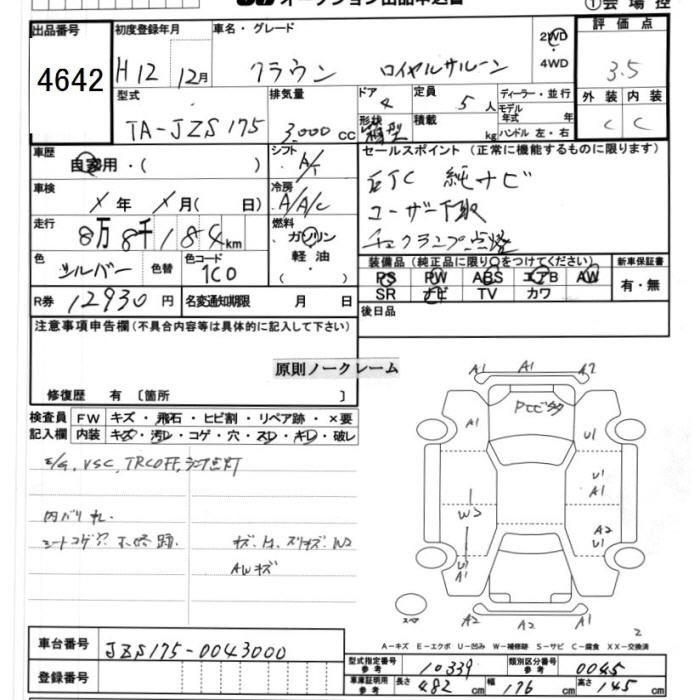 オークション出品申込書
①会場控
出品番号 4642
初度登録年月 H12 12月
車名・グレード クラウン ロイヤルサルーン
2WD
4WD
評価点 3.5
外装 内装
C C
型式 TA-JZS175
排気量 3,000 cc
ドア 4
形状 箱型
定員 5人
積載 kg
ディーラー・並行
モデル年式 年式
ハンドル 左・右
車歴 自家用・( )
シフト A/T
車検 X年 X月( 日)
冷房 A/A/C
走行 8万8千184km
燃料 ガソリン
軽油
・( )
色 シルバー 色替
色コード 1C0
R券 12930円
名変通知期限 月 日
セールスポイント(正常に機能するものに限ります)
ETC 純ナビ
ユーザー下取
チェックランプ点燈
装備品(純正品に限り○をつけてください)
PS PW ABS エアB AW
SR ナビ TV カワ
新車保証書
有・無
後日品
注意事項申告欄(不具合内容等は具体的に記入して下さい)
原則ノークレーム
修復歴 有〔箇所 〕
検査員記入欄
FW キズ・飛石・ヒビ割・リペア跡・×要
内装 キズ・汚レ・コゲ・穴・スレ・キレ・破レ
E/G, VSC, TRC OFF, ランプ点灯
内バリ
シートコゲ穴 補修跡.
AWキズ
A1 A1 A2
A1
U1
U1
A1
W2
A2
U1
U1
A1
スペア
A2 A1 A2
2
A-キズ E-エクボ U-凹み W-補修跡 S-サビ C-腐食 XX-交換済
車台番号 JZS175-0043000
登録番号
型式指定番号 参考 10339
類別区分番号 参考 0045
車庫証明用 参考 長さ 482cm 幅 176cm 高さ 145cm